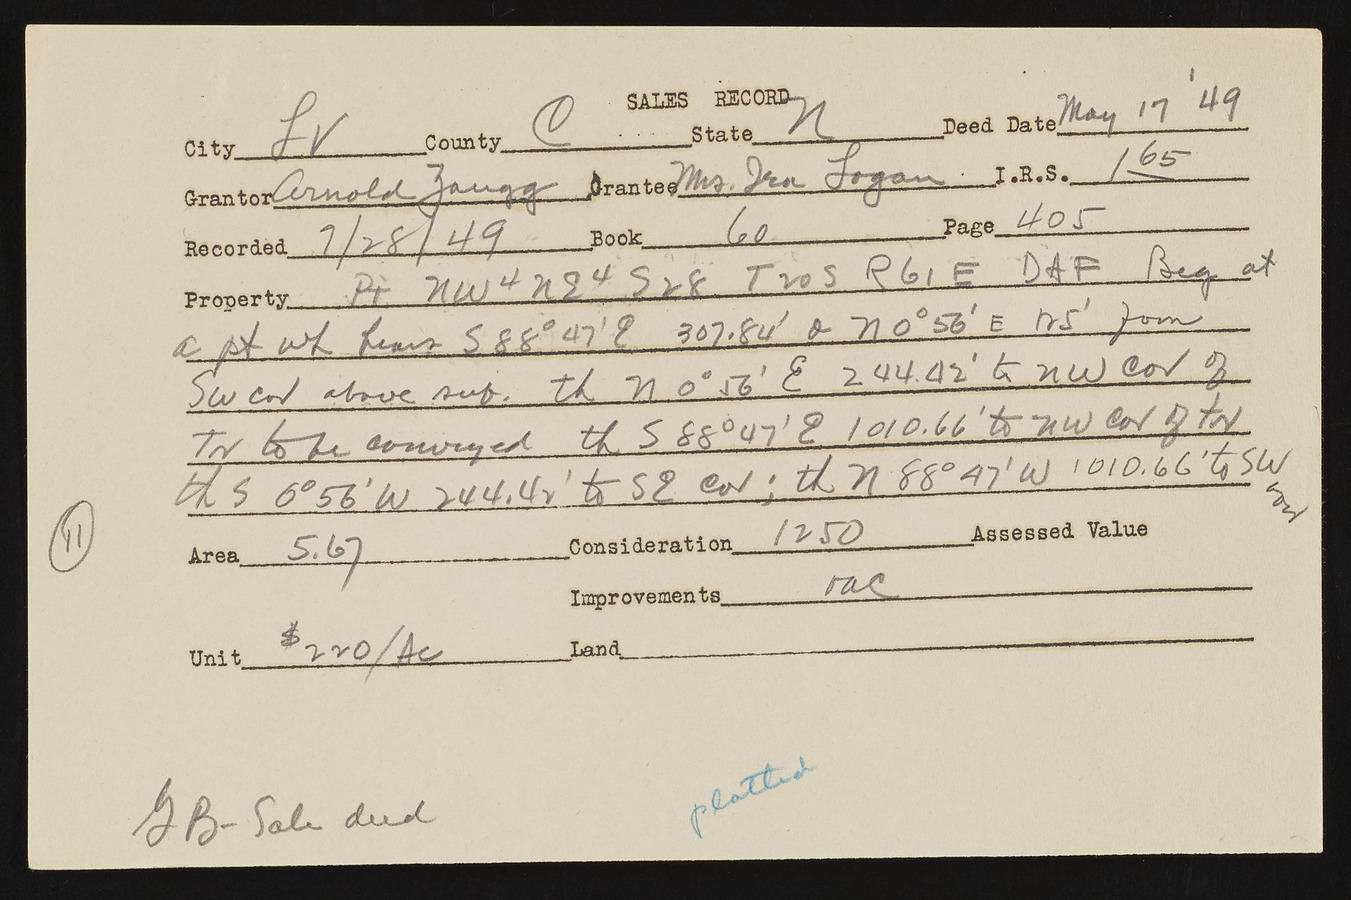 SALES RECORD
City LV County C State N Deed Date May 17 '49
Grantor Arnold Zaugg Grantee Mrs. Ira Logan I.R.S. 1 65
Recorded 7/28/49 Book 60 Page 405
Property Pt NW4 NE4 S28 T20S R61E DAF Beg at
a pt wh bears S 88°47'E 307.84' & N 0°56' E 125' from
SW cor above sub. th N 0°56' E 244.42' to NW cor of
Tr to be conveyed th S 88°47'E 1010.66' to NW cor of tr
th S 0°56'W 244.42' to SE cor; th N 88°47'W 1010.66' to SW
cor
11
Area 5.67 Consideration 1250 Assessed Value
Improvements vac
Unit $220/Ac Land
platted
GB- Sale deed